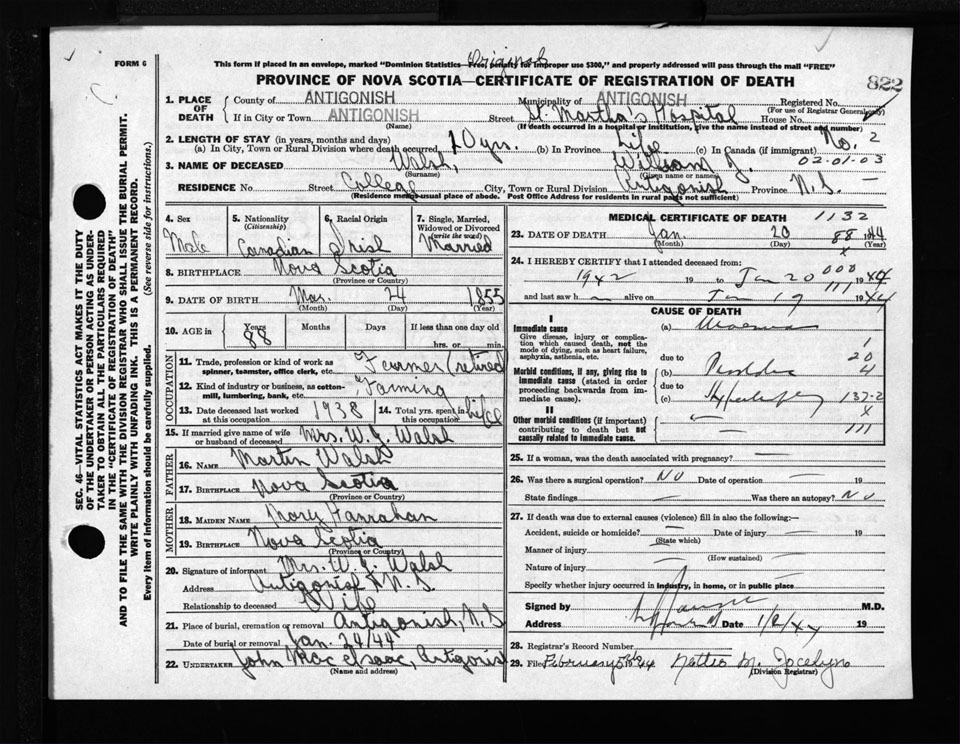 Original
FORM 6
This form if placed in an envelope, marked "Dominion Statistics—Free, penalty for improper use $300," and properly addressed will pass through the mail "FREE"
PROVINCE OF NOVA SCOTIA—CERTIFICATE OF REGISTRATION OF DEATH
822
1. PLACE OF DEATH
County of ANTIGONISH Municipality of ANTIGONISH Registered No.
(For use of Registrar General only)
If in City or Town ANTIGONISH Street St. Martha's Hospital House No.
(Name) (If death occurred in a hospital or institution, give the name instead of street and number)
2. LENGTH OF STAY (in years, months and days)
(a) In City, Town or Rural Division where death occurred 10 yrs. (b) In Province Life (c) In Canada (if immigrant) No. 2
3. NAME OF DECEASED Walsh, William J. 02-01-03
(Surname) (Given name or names)
RESIDENCE No. Street College City, Town or Rural Division Antigonish Province N.S. —
(Residence means usual place of abode. Post Office Address for residents in rural parts not sufficient)
SEC. 46—VITAL STATISTICS ACT MAKES IT THE DUTY
OF THE UNDERTAKER OR PERSON ACTING AS UNDER-
TAKER TO OBTAIN ALL THE PARTICULARS REQUIRED
IN THE "CERTIFICATE OF REGISTRATION OF DEATH"
AND TO FILE THE SAME WITH THE DIVISION REGISTRAR WHO SHALL ISSUE THE BURIAL PERMIT.
WRITE PLAINLY WITH UNFADING INK. THIS IS A PERMANENT RECORD.
Every item of information should be carefully supplied. (See reverse side for instructions.)
4. Sex Male
5. Nationality (Citizenship) Canadian
6. Racial Origin Irish
7. Single, Married, Widowed or Divorced (write the word) Married
8. BIRTHPLACE Nova Scotia
(Province or Country)
9. DATE OF BIRTH Mar. 24 1855
(Month) (Day) (Year)
10. AGE in Years 88 Months Days If less than one day old
hrs. or min.
OCCUPATION
11. Trade, profession or kind of work as spinner, teamster, office clerk, etc. Farmer (retired)
12. Kind of industry or business, as cotton-mill, lumbering, bank, etc. Farming
13. Date deceased last worked at this occupation 1938
14. Total yrs. spent in this occupation Life
15. If married give name of wife or husband of deceased Mrs. W. J. Walsh
FATHER
16. NAME Martin Walsh
17. BIRTHPLACE Nova Scotia
(Province or Country)
MOTHER
18. MAIDEN NAME Mary Hanrahan
19. BIRTHPLACE Nova Scotia
(Province or Country)
20. Signature of informant Mrs. W. J. Walsh
Address Antigonish N.S.
Relationship to deceased Wife
21. Place of burial, cremation or removal Antigonish, N.S
Date of burial or removal Jan. 24/44
22. UNDERTAKER John MacIsaac, Antigonish
(Name and address)
MEDICAL CERTIFICATE OF DEATH 1132
23. DATE OF DEATH Jan. 20 88 1944
(Month) (Day) (Year)
24. I HEREBY CERTIFY that I attended deceased from:
1942 19 to Jan 20 000 1944
and last saw h alive on Jan 19 111 1944
CAUSE OF DEATH
I
Immediate cause (a)
Give disease, injury or complication which caused death, not the mode of dying, such as heart failure, asphyxia, asthenia, etc.
1
due to 20
Morbid conditions, if any, giving rise to immediate cause (stated in order proceeding backwards from immediate cause). (b) 4
due to
(c) 137-2
II
Other morbid conditions (if important) contributing to death but not causally related to immediate cause.
x
111
25. If a woman, was the death associated with pregnancy? —
26. Was there a surgical operation? NO Date of operation — 19
State findings — Was there an autopsy? NO
27. If death was due to external causes (violence) fill in also the following:—
Accident, suicide or homicide? — Date of injury — 19
(State which)
Manner of injury
(How sustained)
Nature of injury
Specify whether injury occurred in industry, in home, or in public place
Signed by M.D.
Address Date 1/2/44 19
28. Registrar's Record Number
29. Filed February 5th 1944 M. Jocelyn
(Division Registrar)